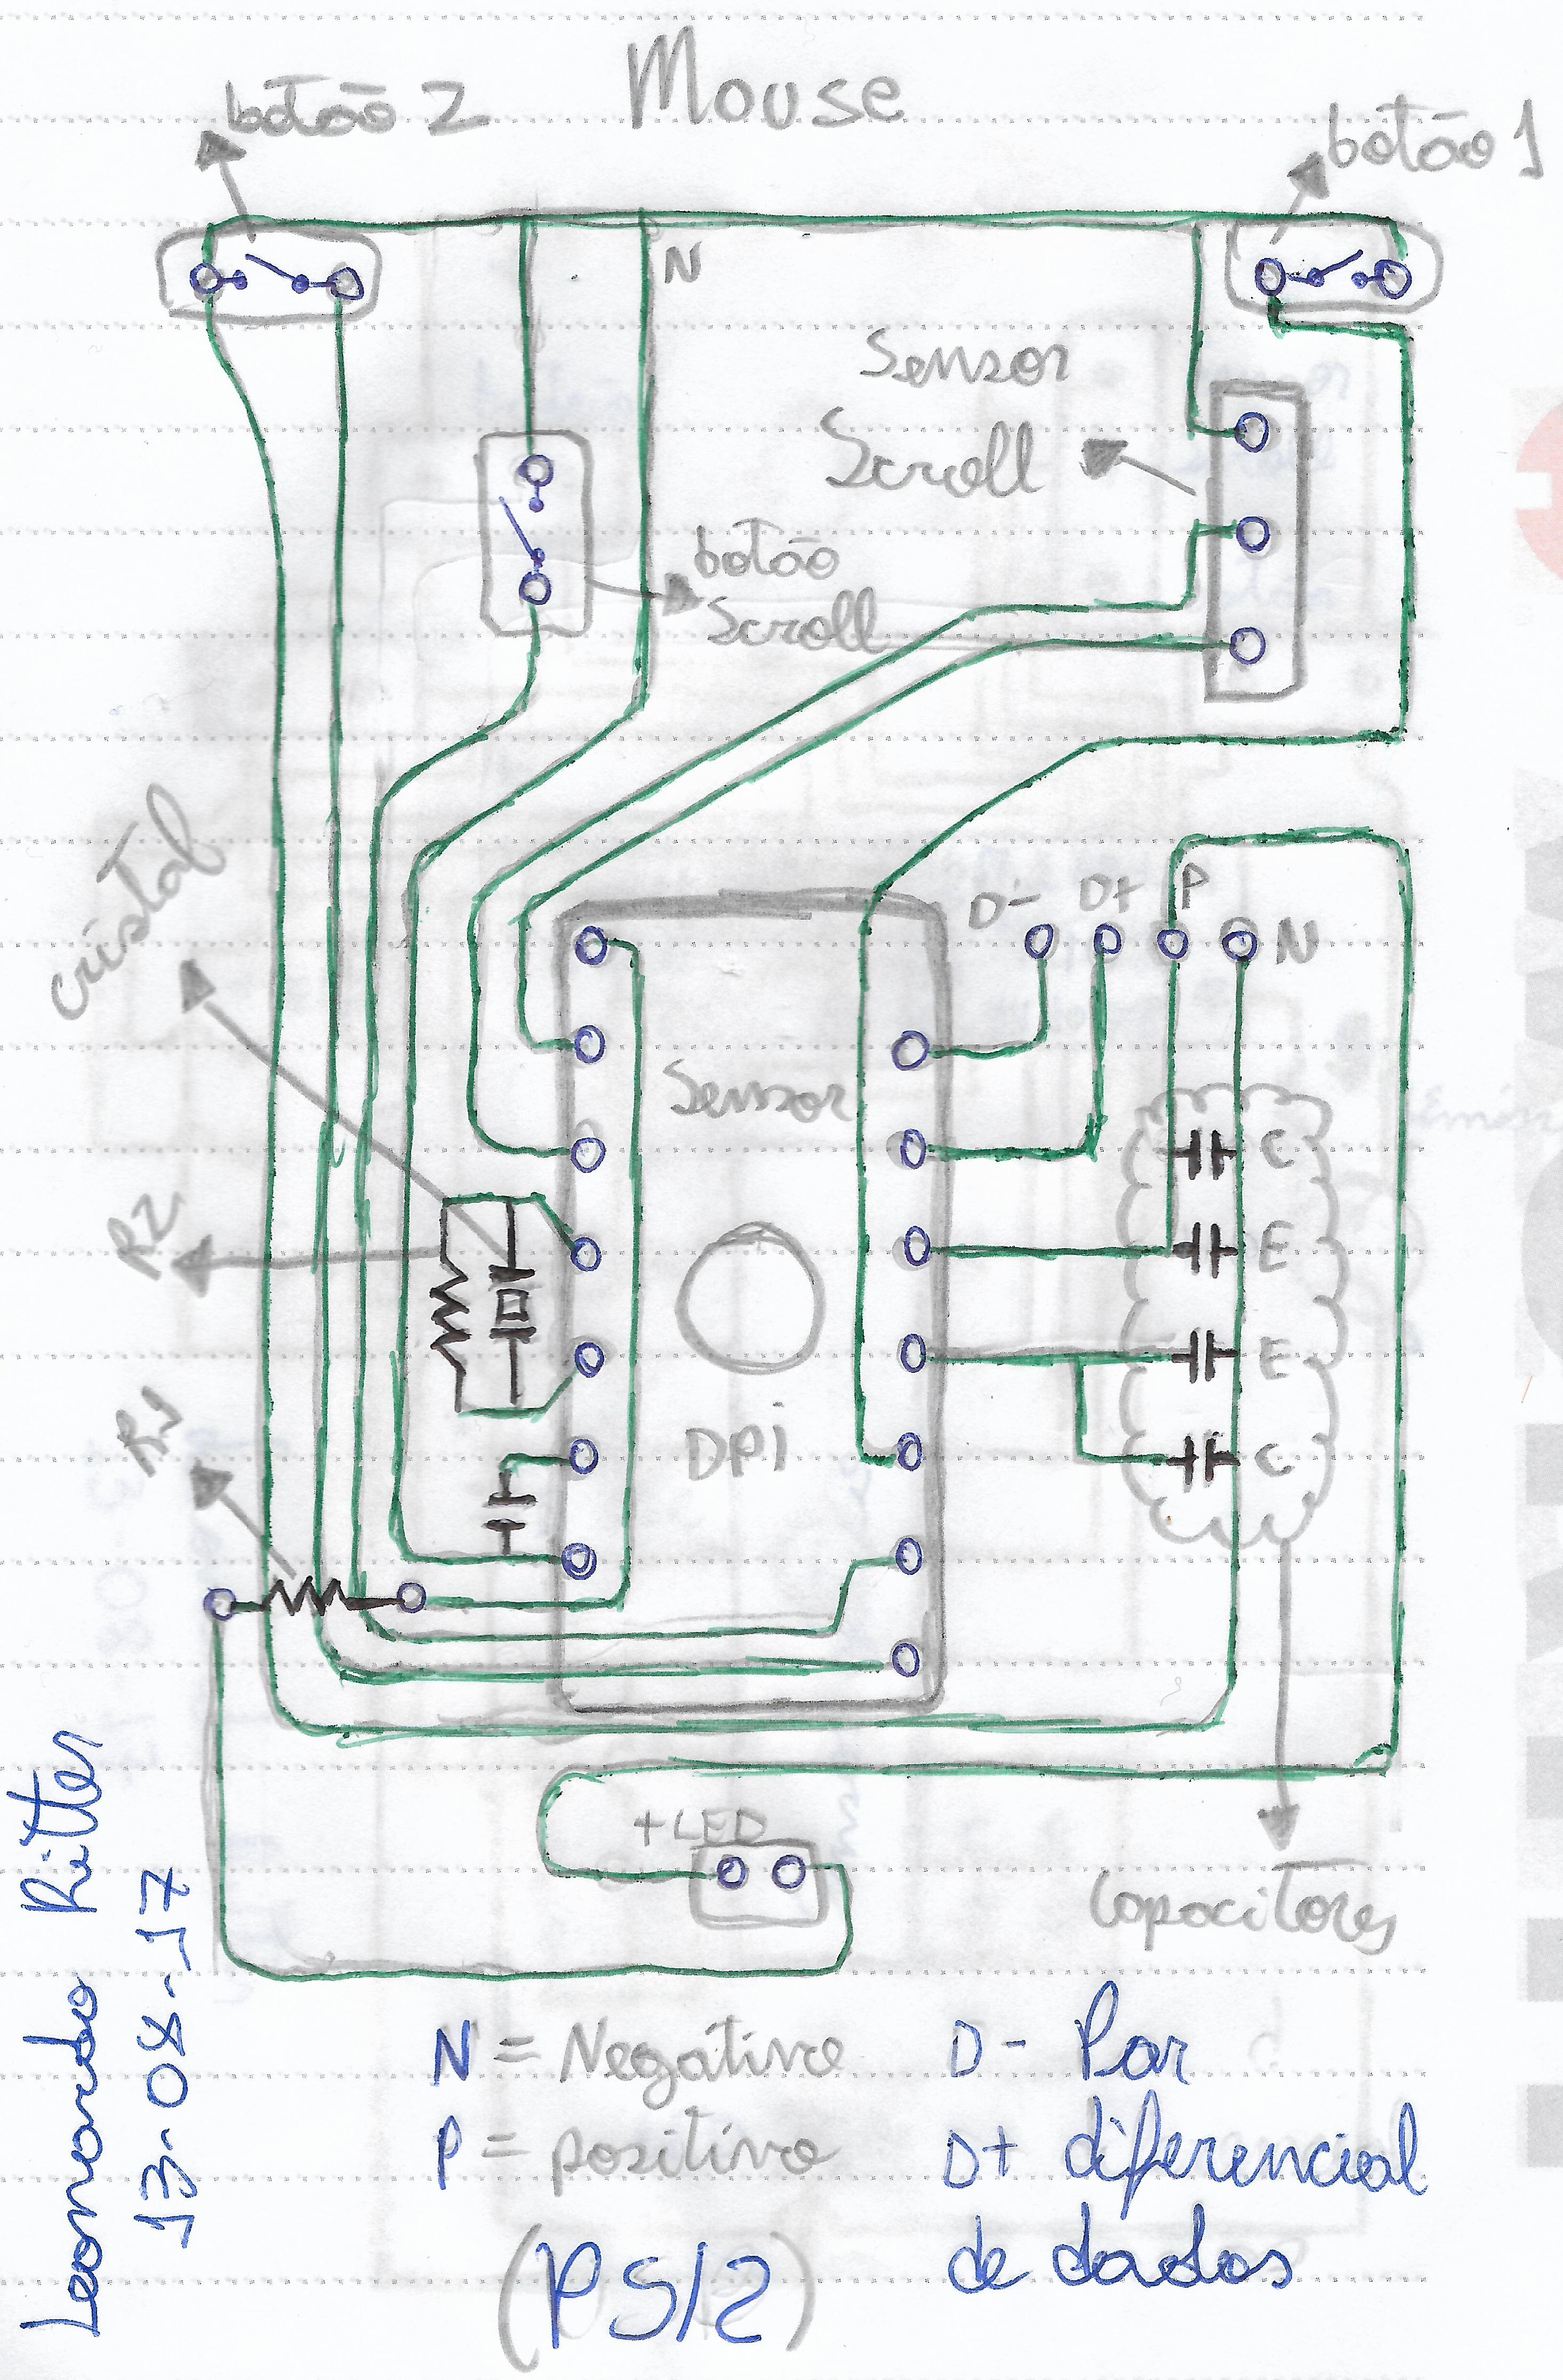 Mouse
botão 2
botão 1
N
Sensor
Scroll
botão
Scroll
cristal
D-
D+
P
N
Sensor
R2
C
E
E
C
R1
DPi
+LED
Capacitores
N = Negativo
P = positivo
D- Par
D+ diferencial
de dados
(PS/2)
Leonardo Ritter
13-08-17